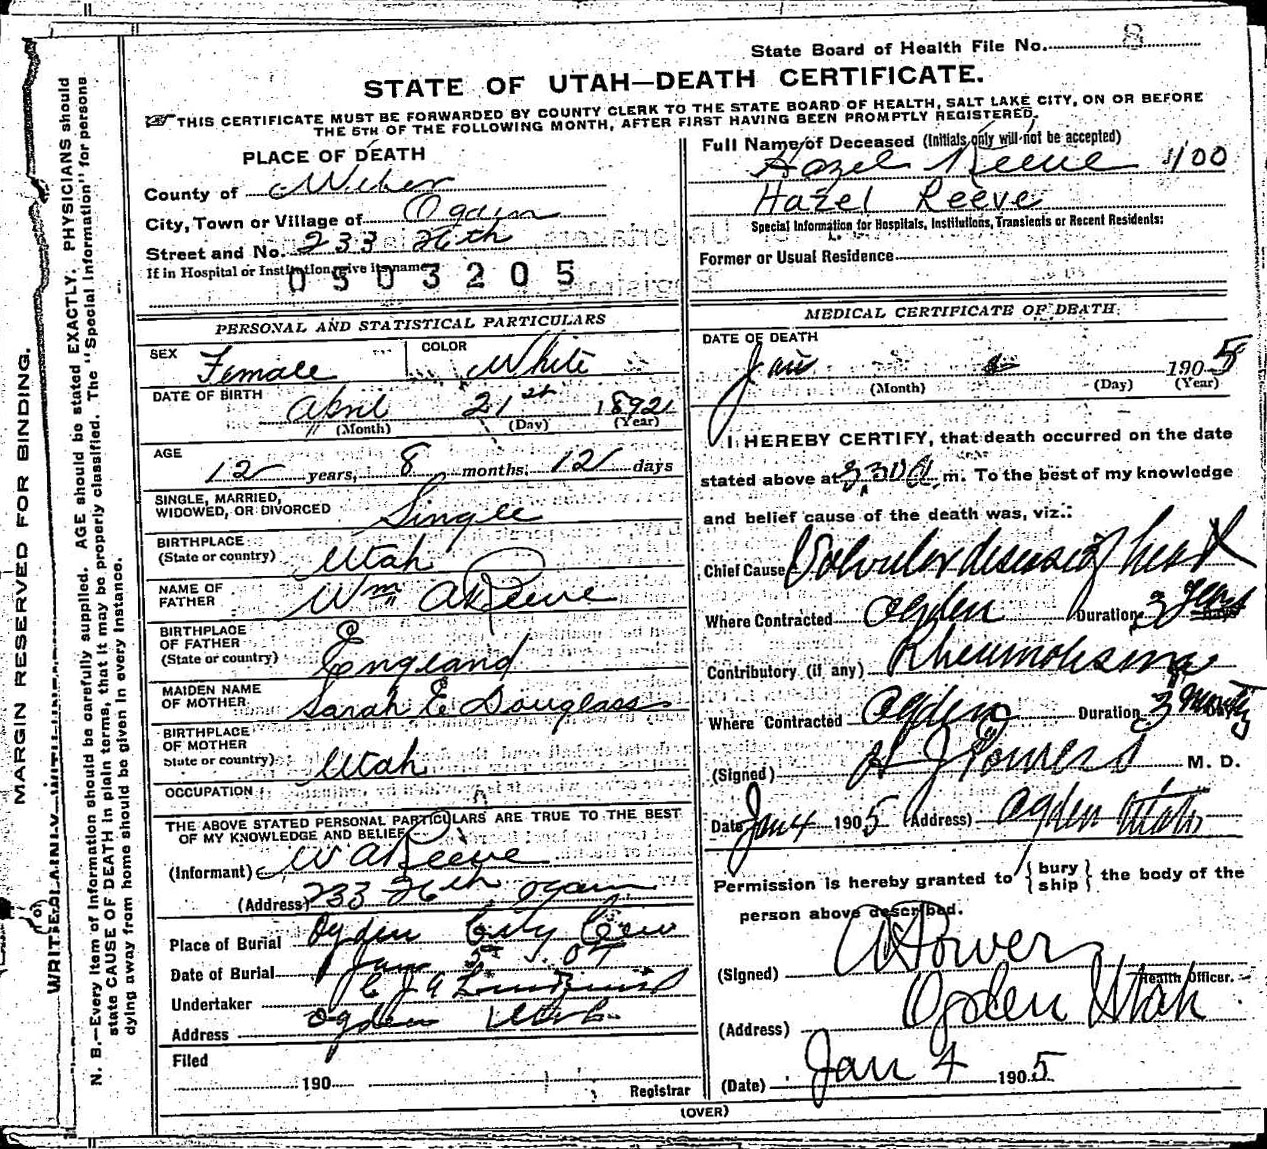 State Board of Health File No. 8
STATE OF UTAH—DEATH CERTIFICATE.
THIS CERTIFICATE MUST BE FORWARDED BY COUNTY CLERK TO THE STATE BOARD OF HEALTH, SALT LAKE CITY, ON OR BEFORE
THE 5TH OF THE FOLLOWING MONTH, AFTER FIRST HAVING BEEN PROMPTLY REGISTERED.
PLACE OF DEATH
County of Weber
City, Town or Village of Ogden
Street and No. 233 26th
If in Hospital or Institution, give its name
0503205
Full Name of Deceased (Initials only will not be accepted)
Hazel Reeve 100
Hazel Reeve
Special Information for Hospitals, Institutions, Transients or Recent Residents:
Former or Usual Residence
PERSONAL AND STATISTICAL PARTICULARS
SEX Female COLOR White
DATE OF BIRTH April 21st 1892
(Month) (Day) (Year)
AGE 12 years, 8 months, 12 days
SINGLE, MARRIED,
WIDOWED, OR DIVORCED Single
BIRTHPLACE
(State or country) Utah
NAME OF
FATHER Wm A Reeve
BIRTHPLACE
OF FATHER
(State or country) England
MAIDEN NAME
OF MOTHER Sarah E Douglass
BIRTHPLACE
OF MOTHER
State or country) Utah
OCCUPATION
THE ABOVE STATED PERSONAL PARTICULARS ARE TRUE TO THE BEST
OF MY KNOWLEDGE AND BELIEF
(Informant) W A Reeve
(Address) 233 26th Ogden
Place of Burial Ogden City Cem
Date of Burial Jan 5
Undertaker
Address Ogden Utah
Filed
190
Registrar
MEDICAL CERTIFICATE OF DEATH.
DATE OF DEATH
Jan 1905
(Month) (Day) (Year)
I HEREBY CERTIFY, that death occurred on the date
stated above at m. To the best of my knowledge
and belief cause of the death was, viz.:
Chief Cause Valvular disease of heart
Where Contracted Ogden Duration 3 Years
Contributory (if any) Rheumatism
Where Contracted Ogden Duration 3 Months
(Signed) H J Powers M. D.
Date Jan 4 1905 (Address) Ogden Utah
Permission is hereby granted to { bury
ship } the body of the
person above described.
(Signed) Power
Health Officer.
(Address) Ogden Utah
(Date) Jan 4 1905
(OVER)
MARGIN RESERVED FOR BINDING.
N. B.—Every item of information should be carefully supplied. AGE should be stated EXACTLY. PHYSICIANS should
state CAUSE OF DEATH in plain terms, that it may be properly classified. The "Special Information" for persons
dying away from home should be given in every instance.